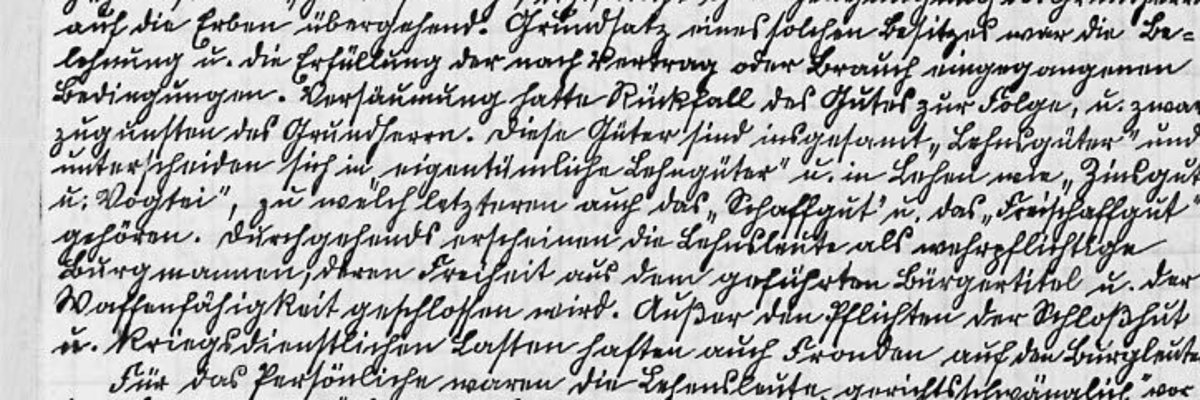 auf die Erben übergehend. Grundsatz eines solchen Besitzes war die Be=
lehnung u. die Erfüllung der nach Vertrag oder Brauch eingegangenen
Bedingungen. Versäumung hatte Rückfall des Gutes zur Folge, u. zwar
zugunsten des Grundherrn. Diese Güter sind insgesamt „Lehnsgüter" und
unterscheiden sich in eigentümliche Lehngüter" u. in Lehen wie „Zinsgut
u. Vogtei", zu welch letzteren auch das „Schaffgut" u. das „Freischaffgut"
gehören. Durchgehends erscheinen die Lehnsleute als wehrpflichtige
Burgmannen, deren Freiheit aus dem geführten Bürgertitel u. der
Waffenfähigkeit geschlossen wird. Außer den Pflichten der Schloßhut
u. kriegsdienstlichen Lasten haften auch Fronden auf den Burgleute
Für das Persönliche waren die Lehensleute „gerichtsschwänglich" vor